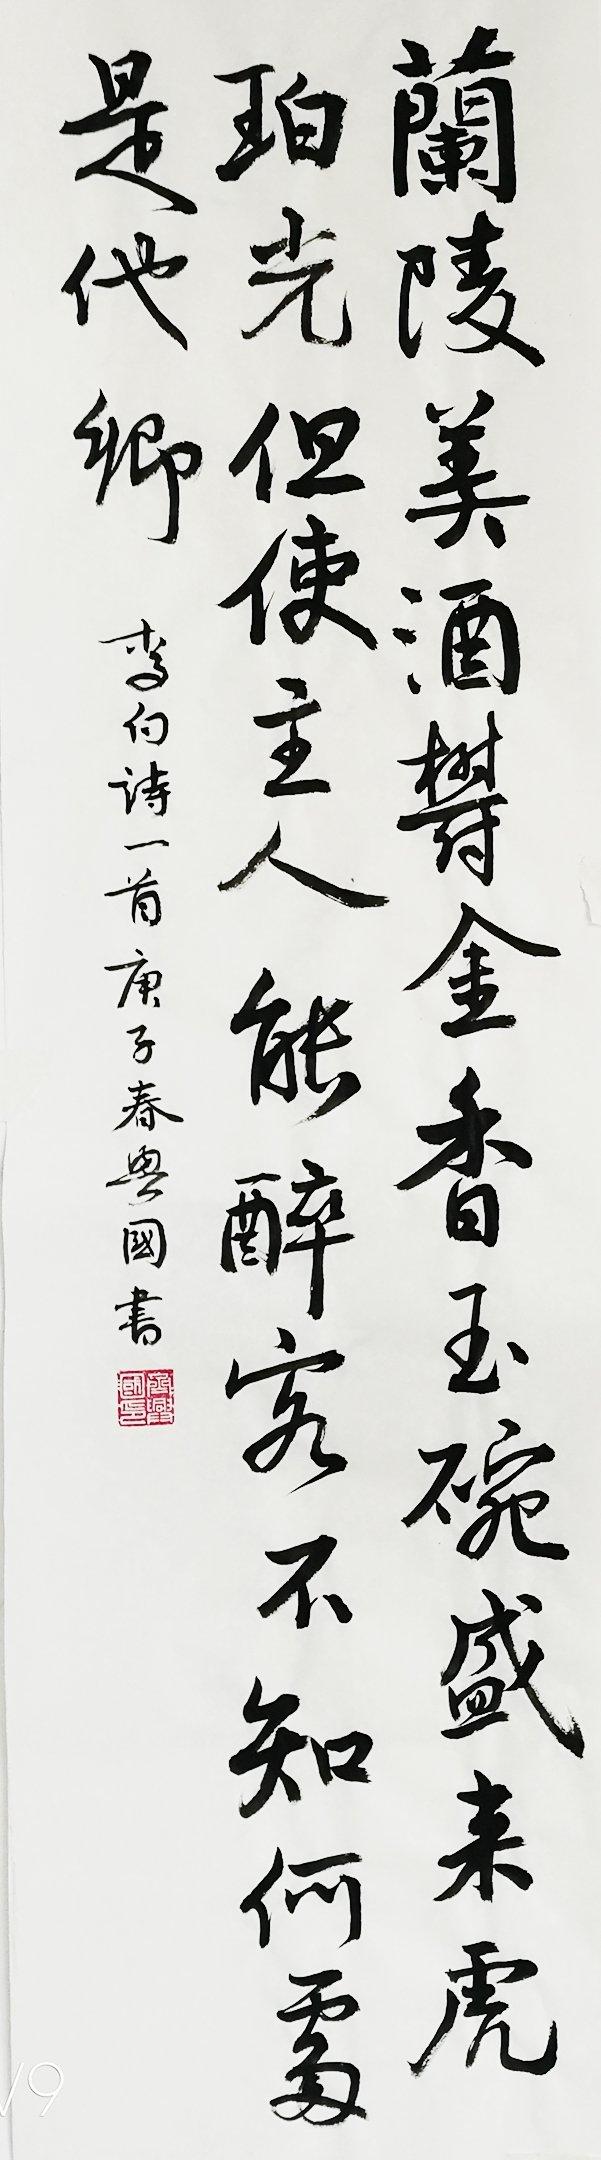 蘭陵美酒鬱金香玉碗盛来虎
珀光但使主人能醉客不知何處
是他鄉
李白詩一首庚子春興國書
齊興國印
V9